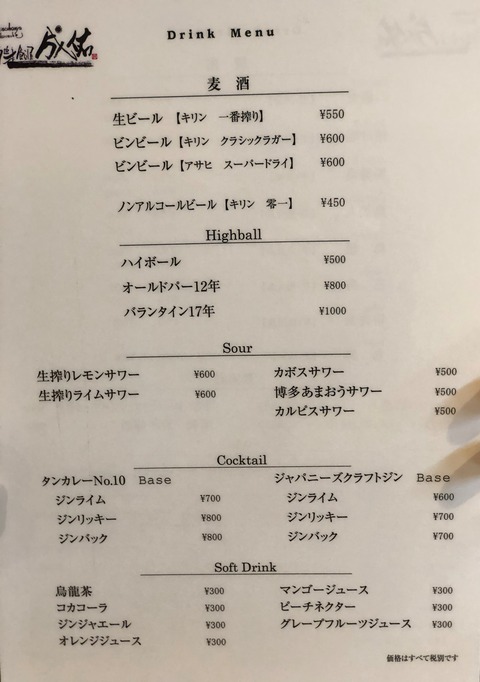 Drink Menu
麦 酒
生ビール 【キリン 一番搾り】 ¥550
ビンビール【キリン クラシックラガー】 ¥600
ビンビール【アサヒ スーパードライ】 ¥600
ノンアルコールビール【キリン 零一】 ¥450
Highball
ハイボール ¥500
オールドパー12年 ¥800
バランタイン17年 ¥1000
Sour
生搾りレモンサワー ¥600
生搾りライムサワー ¥600
カボスサワー ¥500
博多あまおうサワー ¥500
カルピスサワー ¥500
Cocktail
タンカレーNo.10 Base
ジンライム ¥700
ジンリッキー ¥800
ジンバック ¥800
ジャパニーズクラフトジン Base
ジンライム ¥600
ジンリッキー ¥700
ジンバック ¥700
Soft Drink
烏龍茶 ¥300
コカコーラ ¥300
ジンジャエール ¥300
オレンジジュース ¥300
マンゴージュース ¥300
ピーチネクター ¥300
グレープフルーツジュース ¥300
価格はすべて税別です